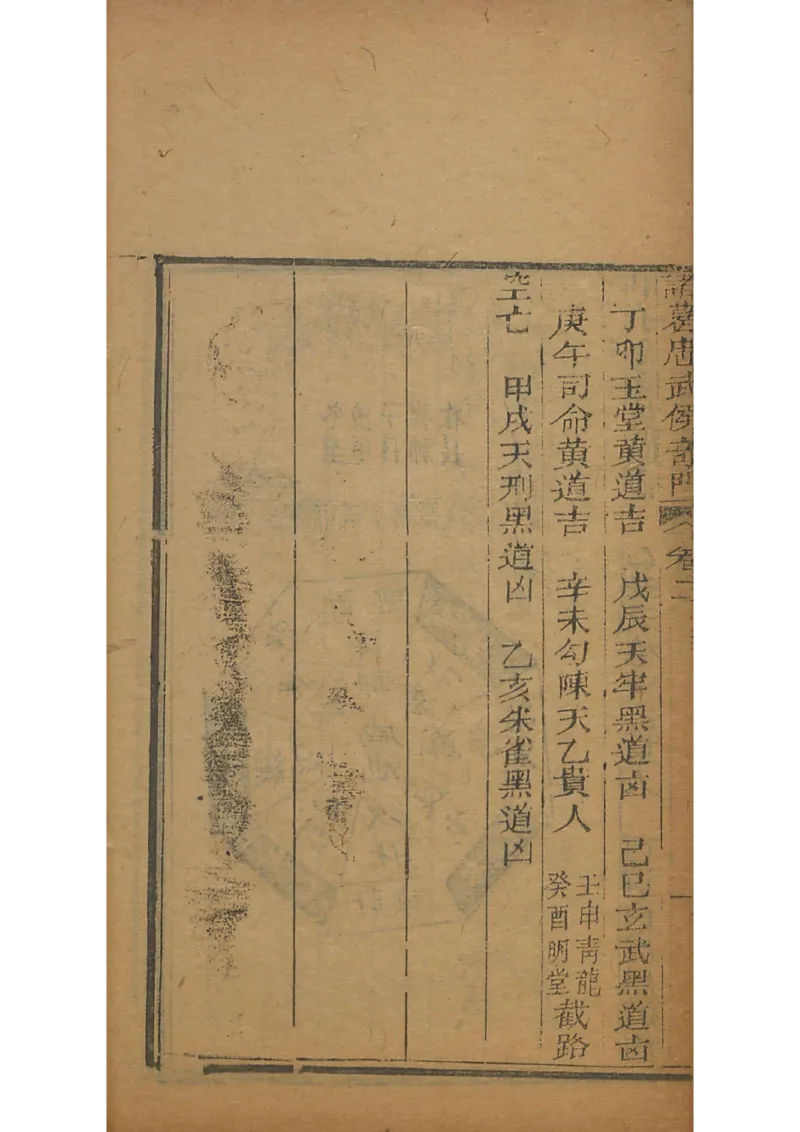 諸葛忠武侯奇門 卷二 一
丁卯玉堂黃道吉 戊辰天牢黑道凶 己巳玄武黑道凶
庚午司命黃道吉 辛未勾陳天乙貴人 壬申青龍癸酉明堂截路
空亡 甲戌天刑黑道凶 乙亥朱雀黑道凶